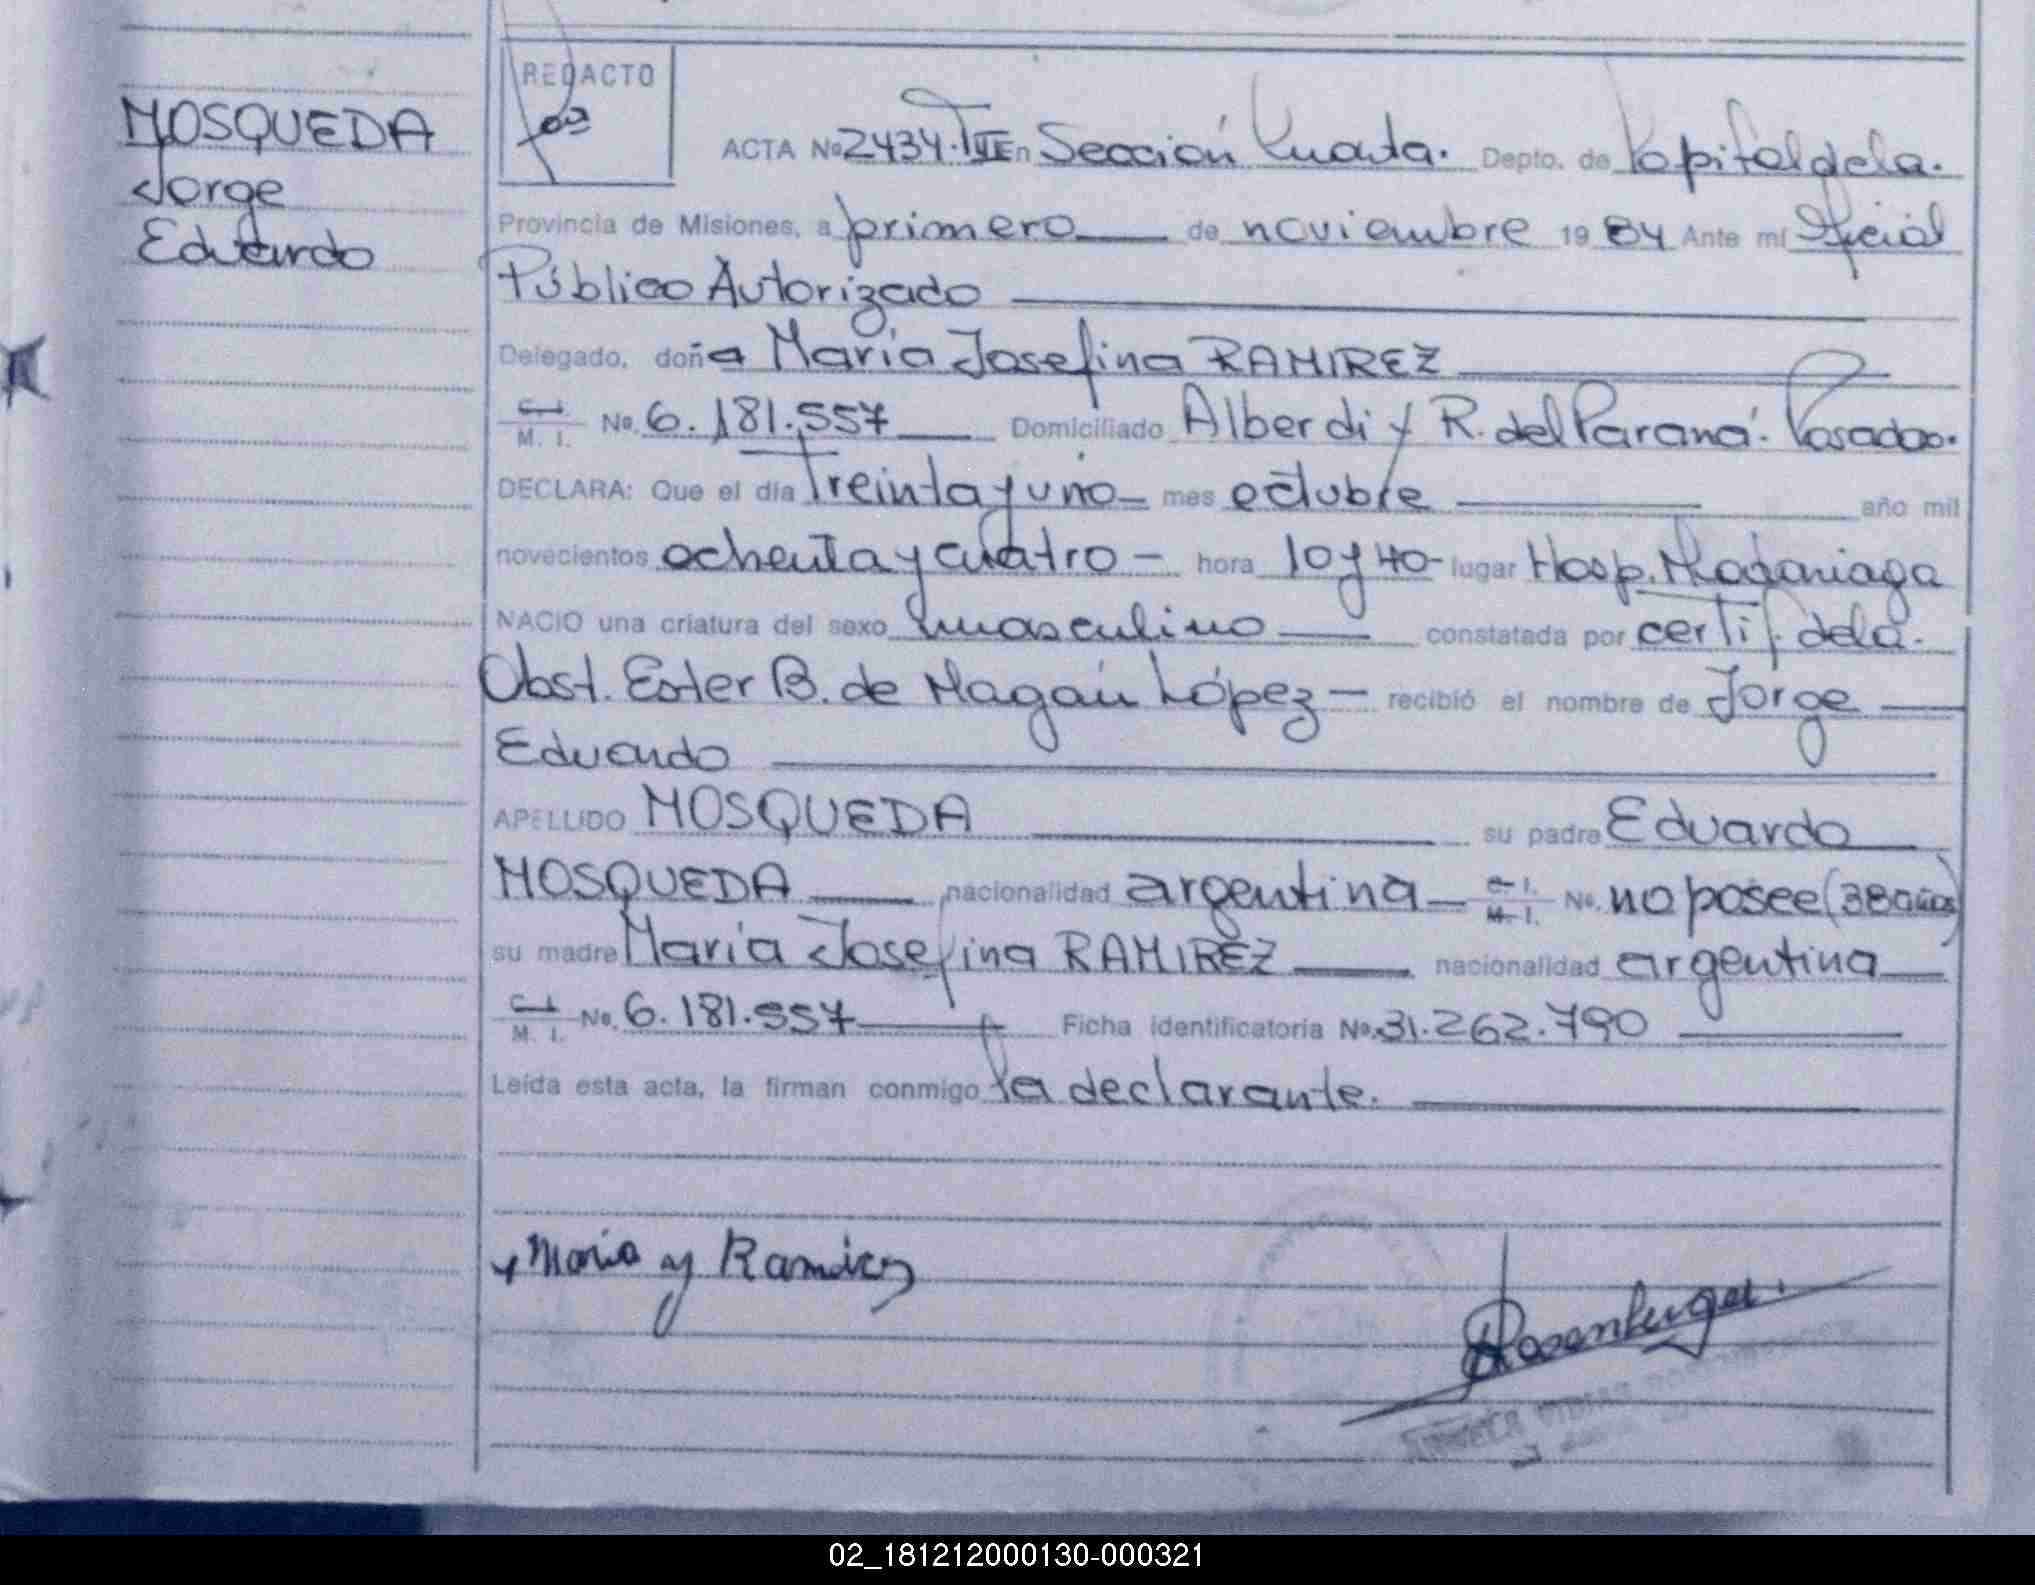 MOSQUEDA
Jorge
Eduardo
REDACTO
ACTA No 2434. T VII En Sección Cuarta. Depto. de Capital de la.
Provincia de Misiones, a primero de noviembre 1984 Ante mí Oficial
Público Autorizado
Delegado, doña María Josefina RAMIREZ
C. I. M. I. No. 6.181.557 Domiciliado Alberdi y R. del Paraná. Posadas.
DECLARA: Que el día Treinta y uno mes octubre año mil
novecientos ochenta y cuatro - hora 10 y 40 - lugar Hosp. Madariaga
NACIO una criatura del sexo masculino constatada por certif. de la.
Obst. Ester B. de Magán López - recibió el nombre de Jorge
Eduardo
APELLIDO MOSQUEDA su padre Eduardo
MOSQUEDA nacionalidad argentina C. I. M. I. No. no posee (38 años)
su madre María Josefina RAMIREZ nacionalidad argentina
C. I. M. I. No. 6.181.557 Ficha identificatoria No. 31.262.790
Leída esta acta, la firman conmigo la declarante.
María y Ramirez
02_181212000130-000321